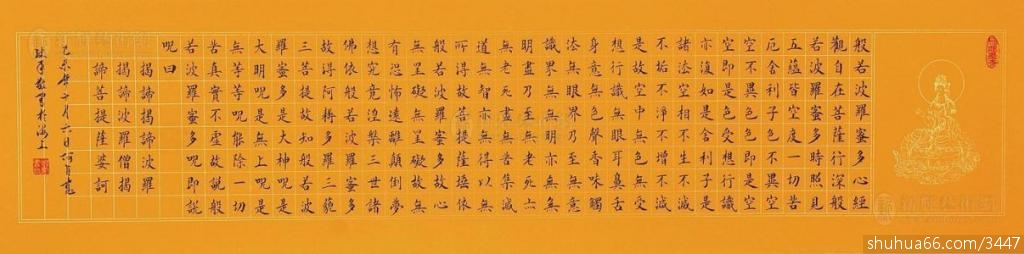 般若波羅蜜多心經
觀自在菩薩行深般
若波羅蜜多時照見
五蘊皆空度一切苦
厄舍利子色不異空
空不異色色即是空
空即是色受想行識
亦復如是舍利子是
諸法空相不生不滅
不垢不淨不增不減
是故空中無色無受
想行識無眼耳鼻舌
身意無色聲香味觸
法無眼界乃至無意
識界無無明亦無無
明盡乃至無老死亦
無老死盡無苦集滅
道無智亦無得以無
所得故菩提薩埵依
般若波羅蜜多故心
無罣礙無罣礙故無
有恐怖遠離顛倒夢
想究竟涅槃三世諸
佛依般若波羅蜜多
故得阿耨多羅三藐
三菩提故知般若波
羅蜜多是大神呪是
大明呪是無上呪是
無等等呪能除一切
苦真實不虛故說般
若波羅蜜多呪即說
呪曰
揭諦揭諦波羅
揭諦波羅僧揭
諦菩提薩婆訶
乙未年二月六日
敬書於海上
shuhua66.com/3447